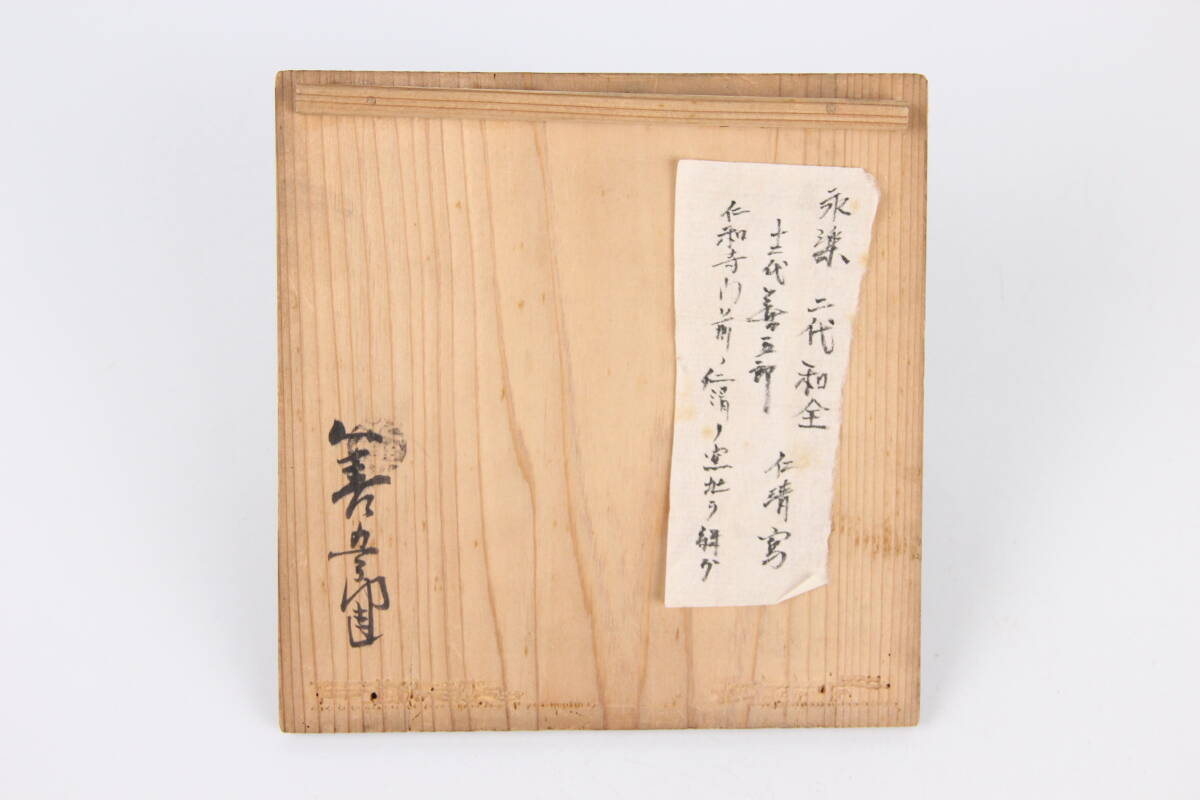 永楽 二代 和全
十二代 善五郎 仁清写
仁和寺門前ノ仁清ノ窯址ヲ
善五郎造